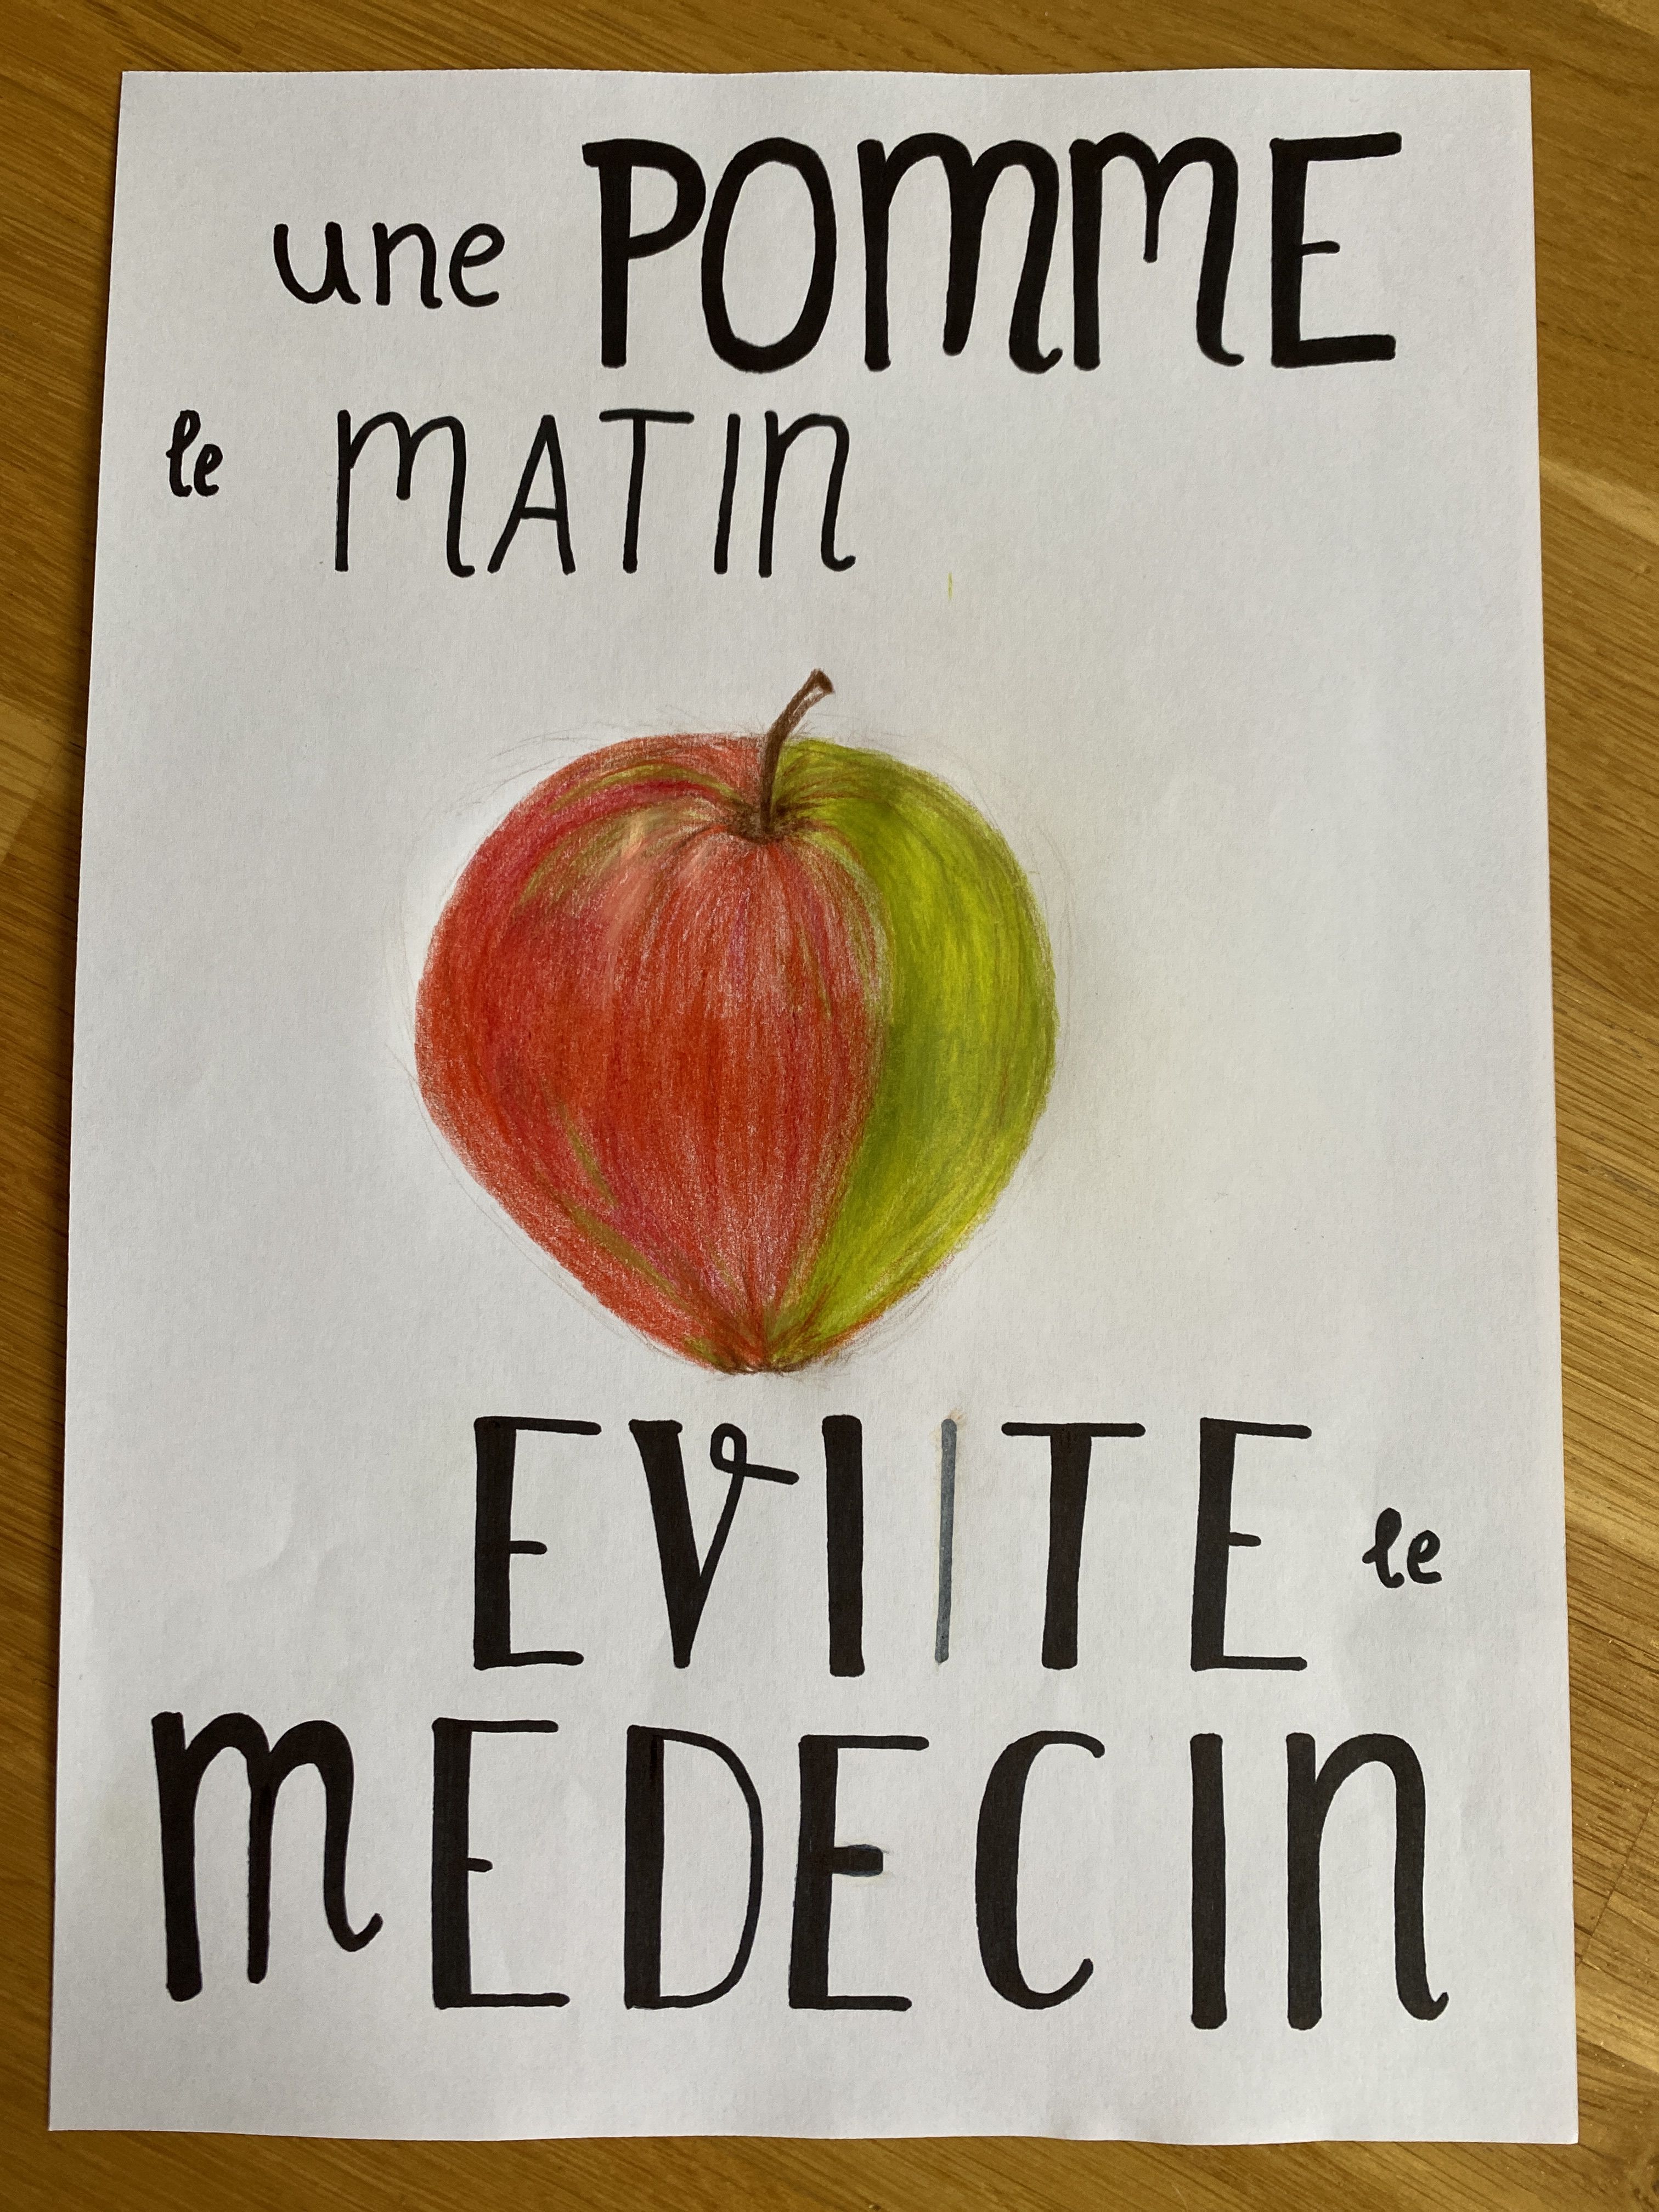 une POMME
le MATIN
EVITE le
MEDECIN